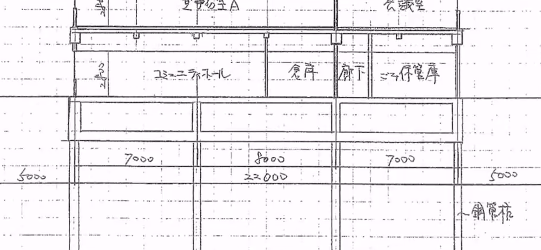 会議室
コミュニティホール 倉庫 廊下 ゴミ保管庫
7000 8000 7000
5000 22000 5000
鋼管杭